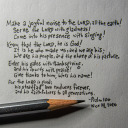 Make a joyful noise to the Lord, all the earth!
Serve the Lord with gladness!
Come into his presence with singing!
Know that the Lord, he is God!
It is he who made us, and we are his;
we are his people, and the sheep of his pasture.
Enter his gates with thanksgiving,
and his courts with praise!
Give thanks to him; bless his name!
For the Lord is good;
his steadfast love endures forever,
and his faithfulness to all generations.
Psalm 100